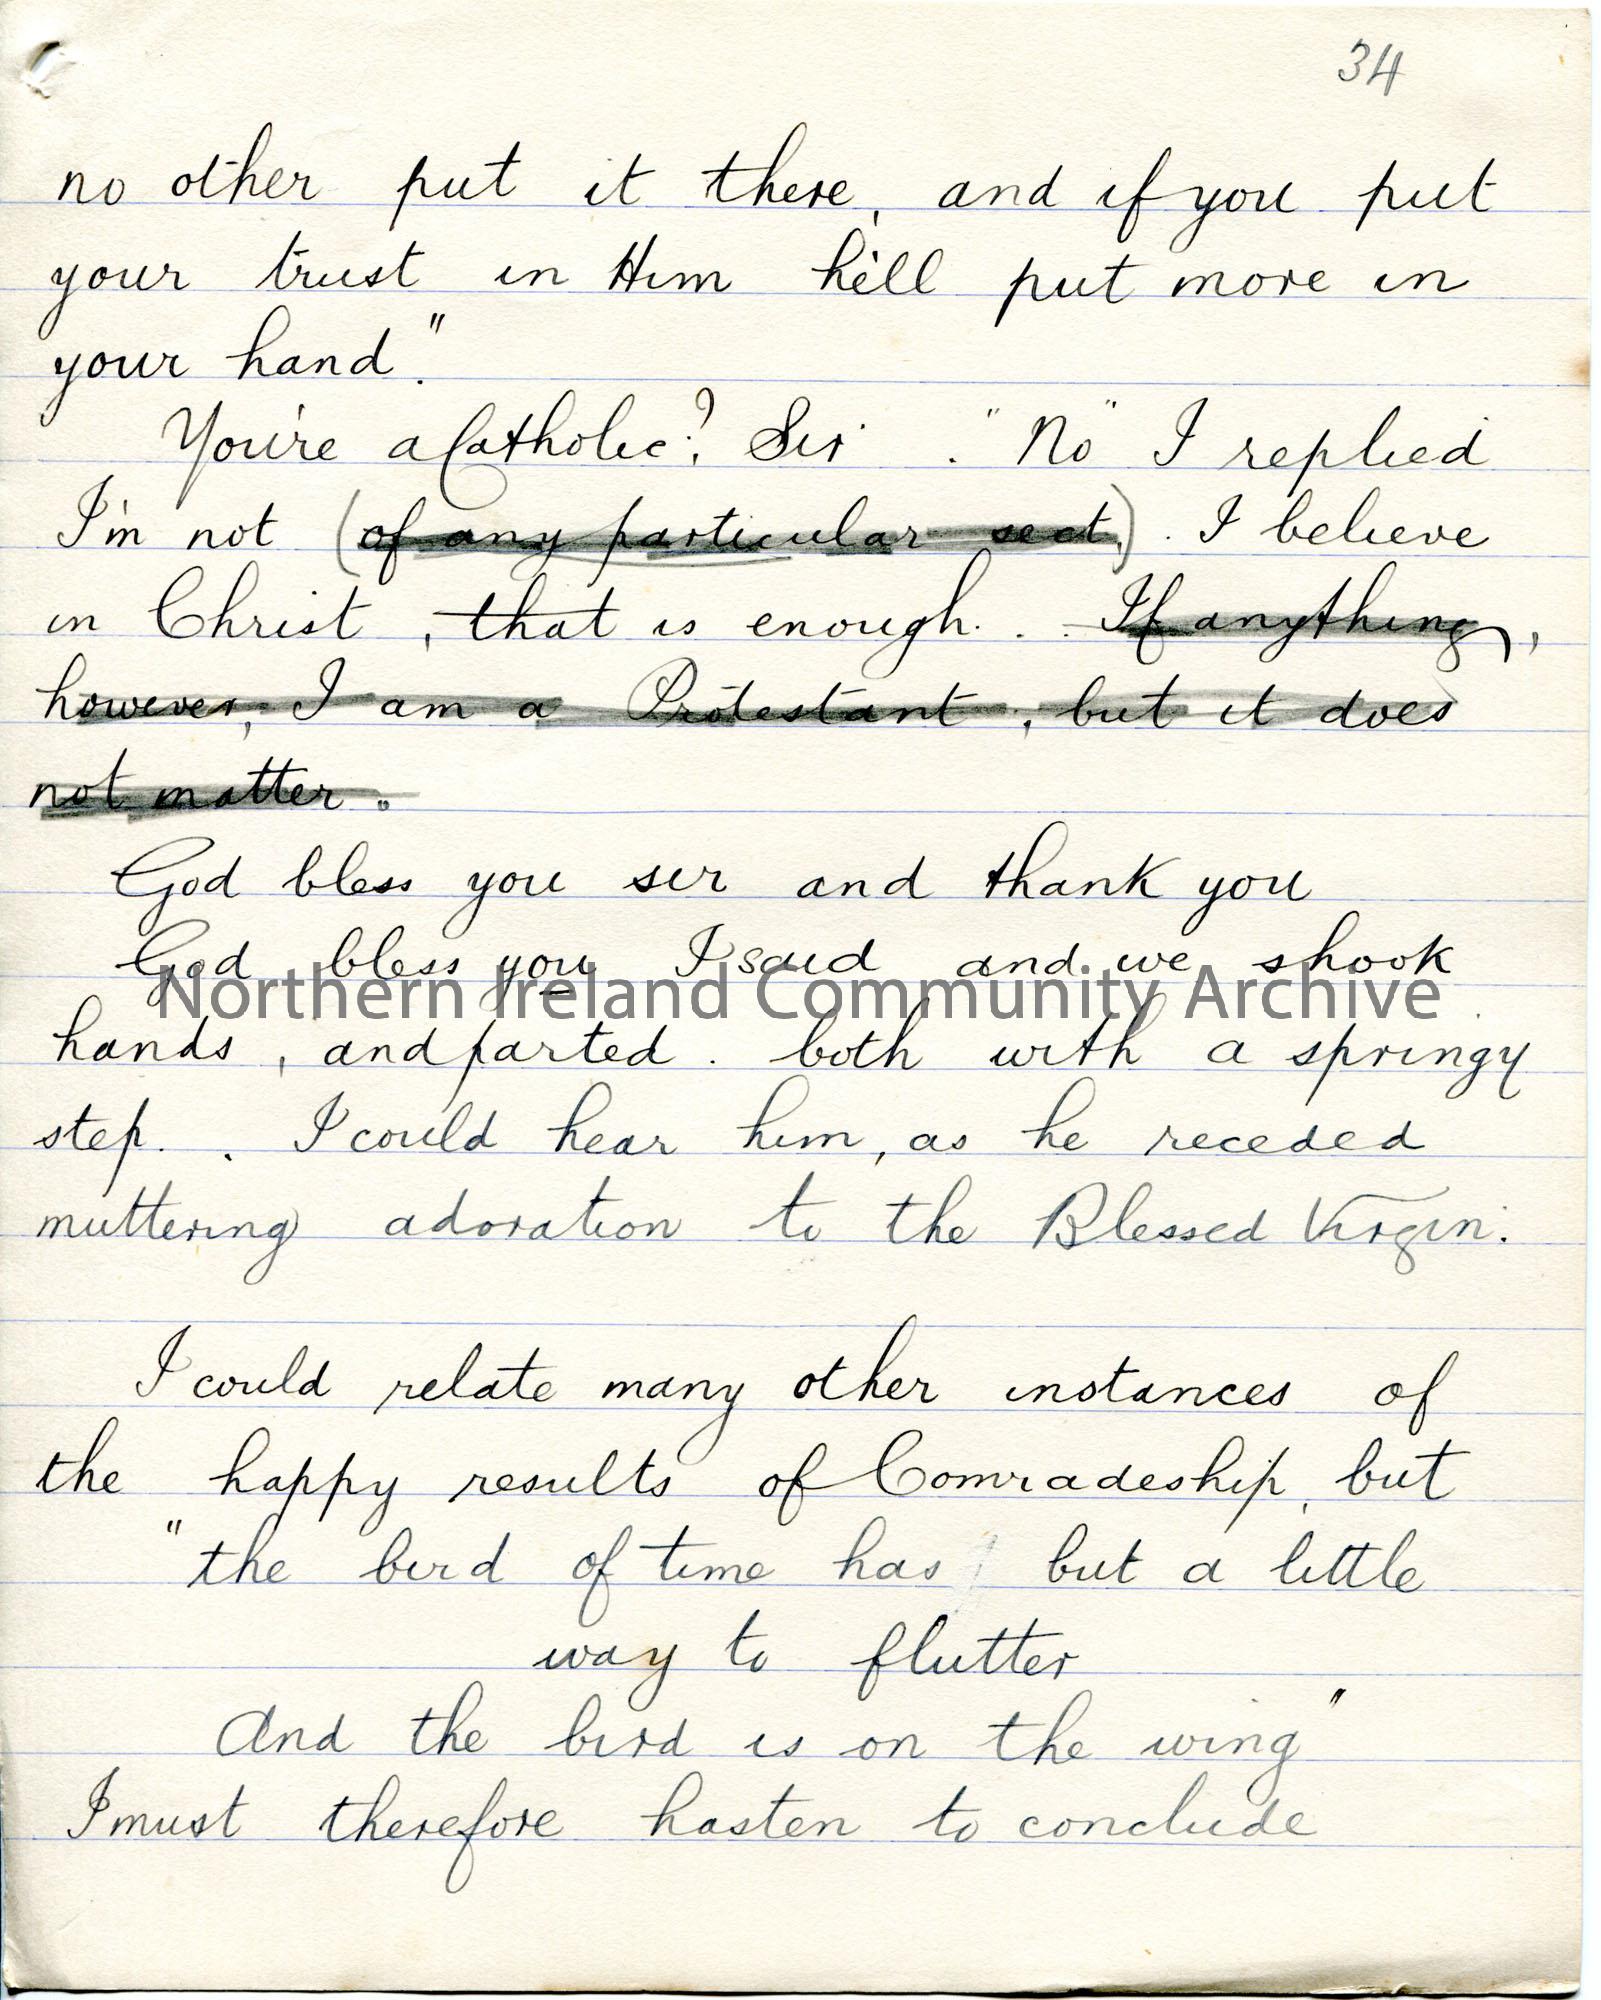 34
no other put it there, and if you put
your trust in Him he'll put more in
your hand."
You're a Catholic? Sir. "No" I replied
I'm not (of any particular sect.). I believe
in Christ, that is enough. . If anything,
however, I am a Protestant, but it does
not matter.
God bless you sir and thank you
God bless you I said and we shook
Northern Ireland Community Archive
hands, and parted. both with a springy
step. . I could hear him, as he receded
muttering adoration to the Blessed Virgin.
I could relate many other instances of
the happy results of Comradeship, but
"the bird of time has but a little
way to flutter
And the bird is on the wing"
I must therefore hasten to conclude